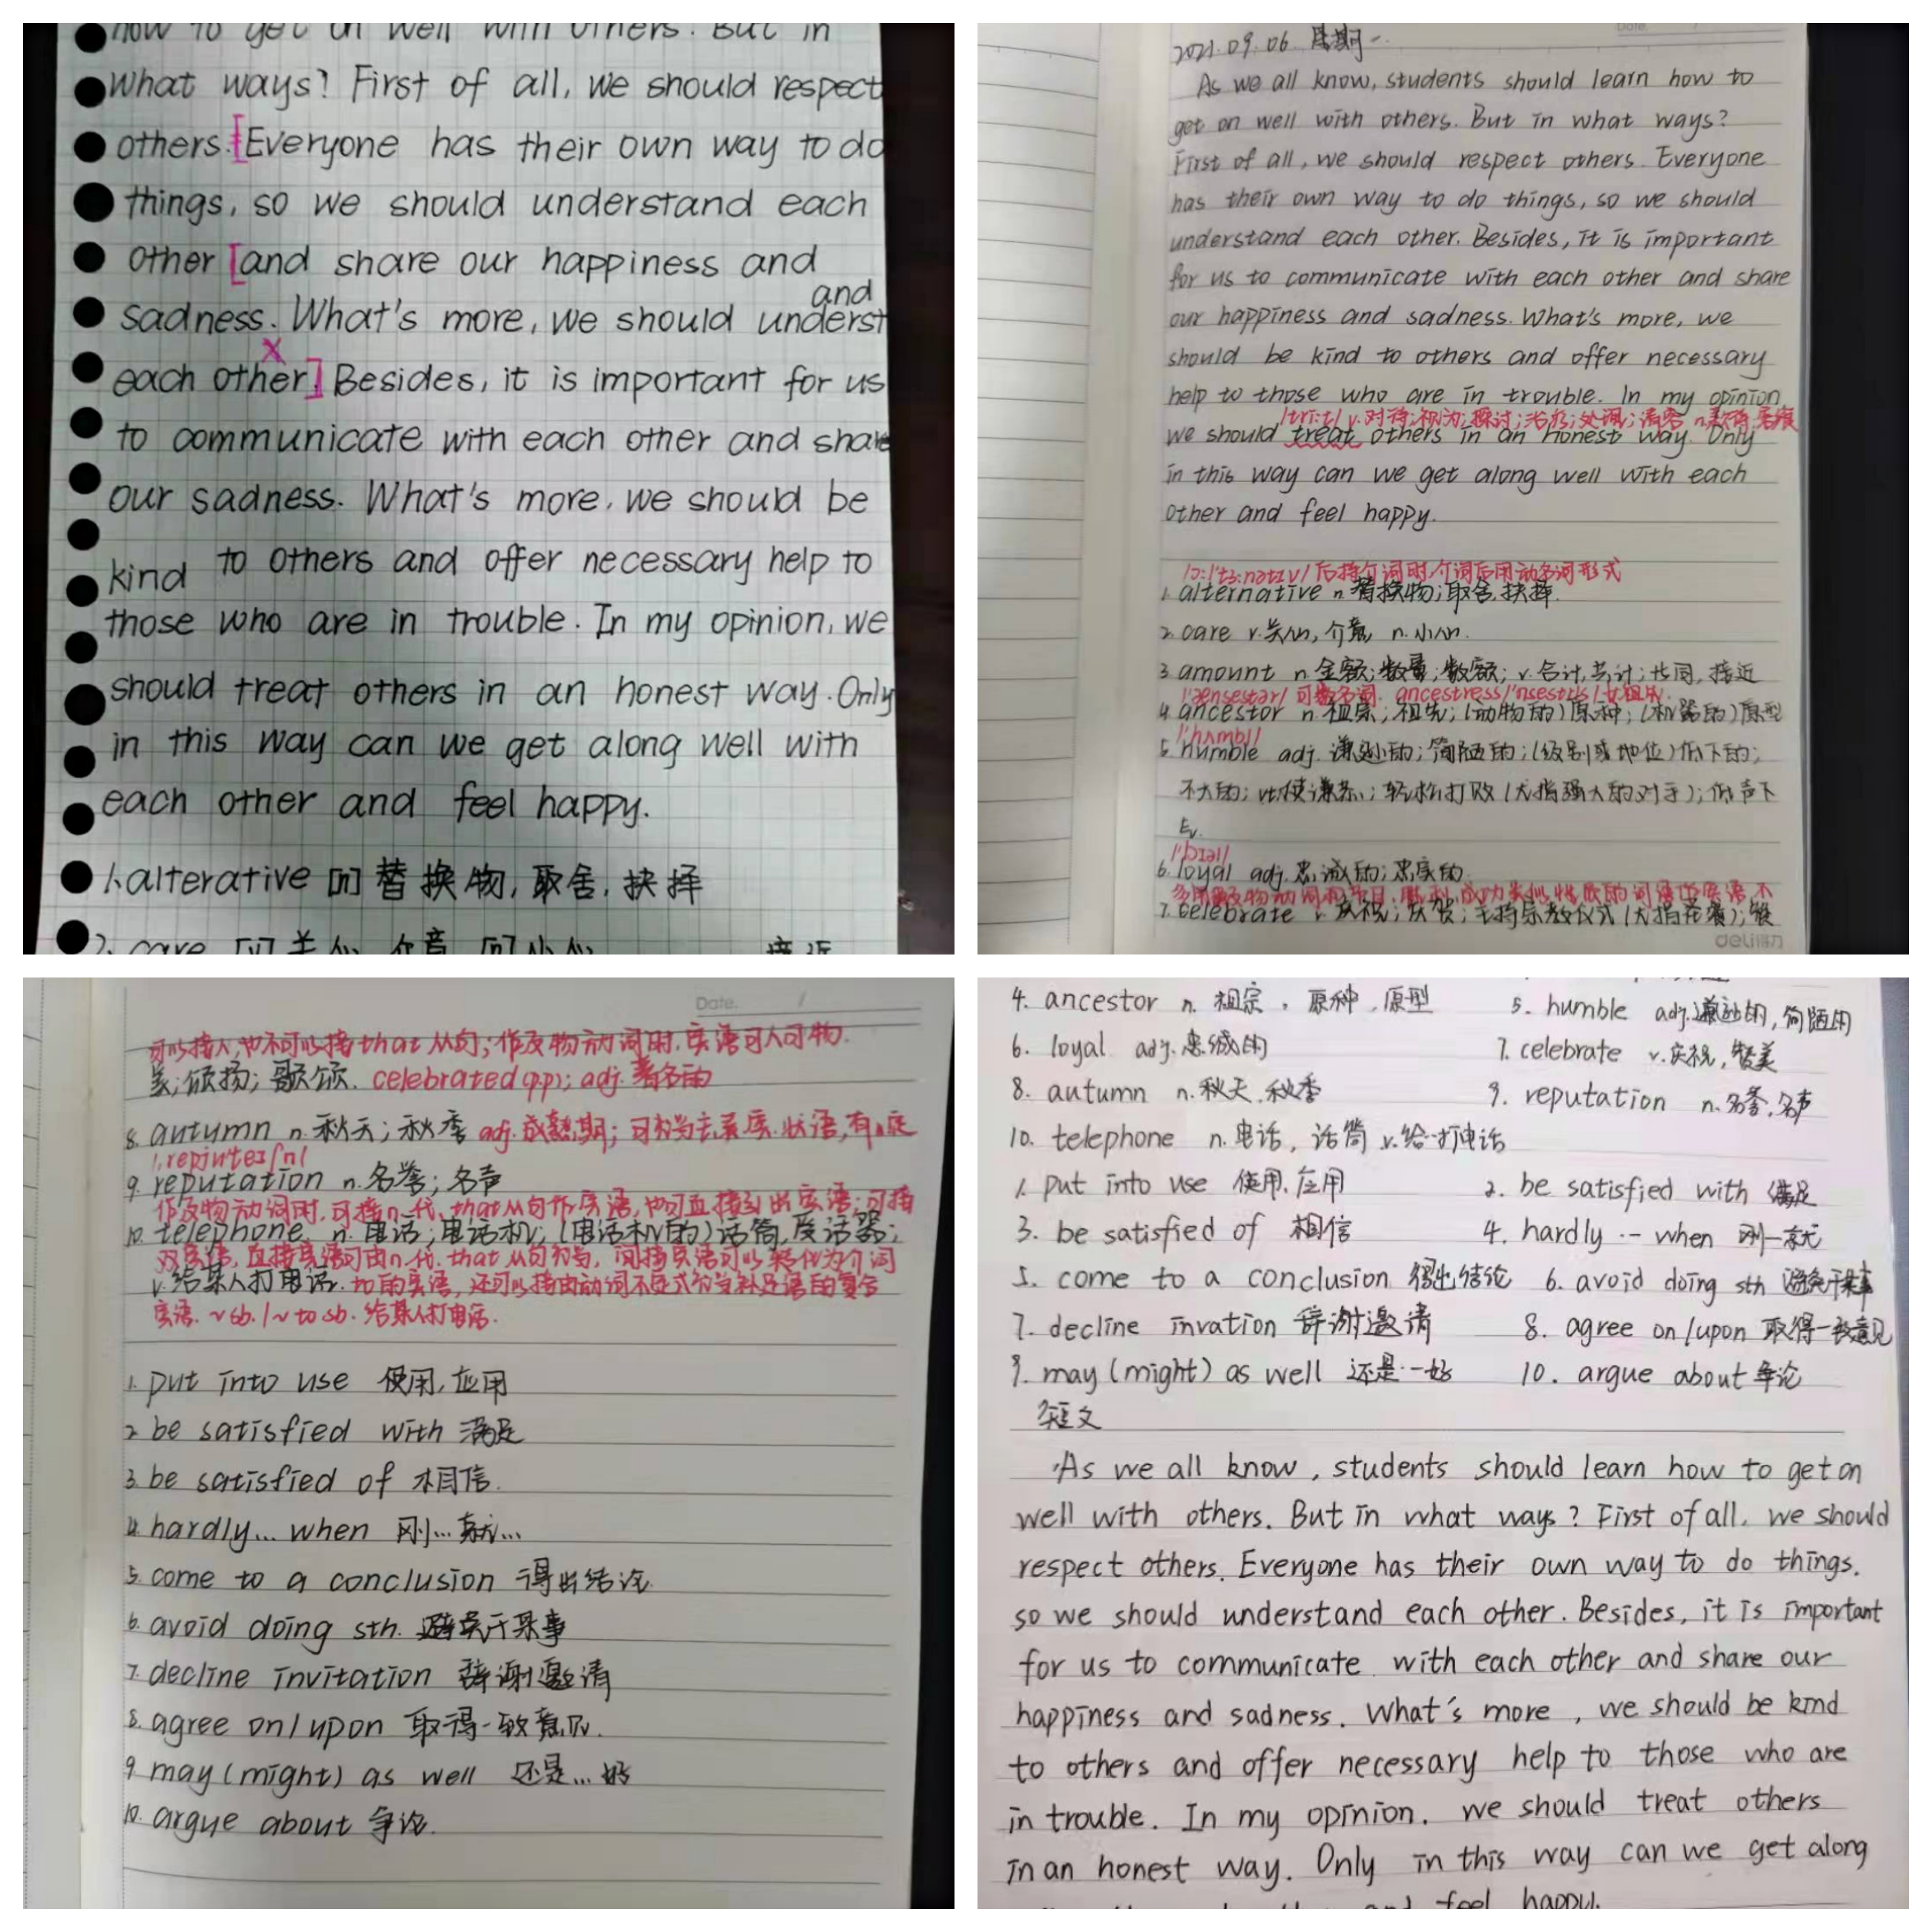 how to get on well with others. But in
What ways? First of all, we should respect
others. Everyone has their own way to do
things, so we should understand each
other and share our happiness and
sadness. What's more, we should underst
and
each other. Besides, it is important for us
to communicate with each other and share
our sadness. What's more, we should be
kind to others and offer necessary help to
those who are in trouble. In my opinion, we
should treat others in an honest way. Only
in this way can we get along well with
each other and feel happy.
1. alterative [n] 替换物, 取舍, 抉择
2. care 关心 介意 小心 接近
Date
2021.09.06. 星期一.
As we all know, students should learn how to
get on well with others. But in what ways?
First of all, we should respect others. Everyone
has their own way to do things, so we should
understand each other. Besides, it is important
for us to communicate with each other and share
our happiness and sadness. What's more, we
should be kind to others and offer necessary
help to those who are in trouble. In my opinion,
/tri:t/ v.对待;视为;探讨;治疗;处理;请客 n.
we should treat others in an honest way. Only
in this way can we get along well with each
other and feel happy.
/ɔ:l'tɜ:nətɪv/ 后接介词时,介词后用动名词形式
1. alternative n 替换物;取舍,抉择.
2. care v.关心,介意, n.小心.
3. amount n 金额;数量;数额; v.合计,共计;共同,接近
/'ænsestər/ 可数名词. ancestress
4. ancestor n. 祖宗;祖先;(动物的)原种;(机器的)原型
/'hʌmbl/
5. humble adj. 谦逊的;简陋的;(级别或地位)低下的;
不大的; vt.使谦恭;轻松打败(尤指强大的对手);低声下
气.
6. loyal adj.忠诚的;忠实的
7. celebrate v.庆祝;庆贺;主持宗教仪式(尤指弥撒);赞
deli得力
Date. /
可以接人,也不可以接that从句;作及物动词时,宾语可人可物.
美;颂扬;歌颂. celebrated(p.p); adj. 著名的
8. autumn n.秋天;秋季 adj.成熟期;可作主系宾.状语,有
9. reputation n.名誉;名声
作及物动词时,可接n.代.that从句作宾语,也可直接引出宾语;可接
10. telephone n. 电话;电话机;(电话机的)话筒,受话器;
双宾语,直接宾语可由n.代.that从句作,间接宾语可以转化为介词
v.给某人打电话. to的宾语,还可以接由动词不定式作补足语的复合
宾语. ~sb./~ to sb. 给某人打电话.
1. put into use 使用,应用
2. be satisfied with 满足
3. be satisfied of 相信.
4. hardly... when 刚...就...
5. come to a conclusion 得出结论.
6. avoid doing sth. 避免干某事
7. decline invitation 辞谢邀请
8. agree on/upon 取得一致意见.
9. may (might) as well 还是...好
10. argue about 争论.
4. ancestor n. 祖宗, 原种, 原型 5. humble adj.谦逊的,简陋的
6. loyal adj.忠诚的 7. celebrate v.庆祝,赞美
8. autumn n.秋天,秋季 9. reputation n.名誉,名声
10. telephone n.电话, 话筒 v.给…打电话
1. put into use 使用,应用 2. be satisfied with 满足
3. be satisfied of 相信 4. hardly … when 刚一就
5. come to a conclusion 得出结论 6. avoid doing sth 避免干某事
7. decline invation 辞谢邀请 8. agree on/upon 取得一致意见
9. may (might) as well 还是…好 10. argue about 争论
短文
As we all know, students should learn how to get on
well with others. But in what ways? First of all, we should
respect others. Everyone has their own way to do things.
so we should understand each other. Besides, it is important
for us to communicate with each other and share our
happiness and sadness. What's more, we should be kind
to others and offer necessary help to those who are
in trouble. In my opinion, we should treat others
in an honest way. Only in this way can we get along
and feel happy.